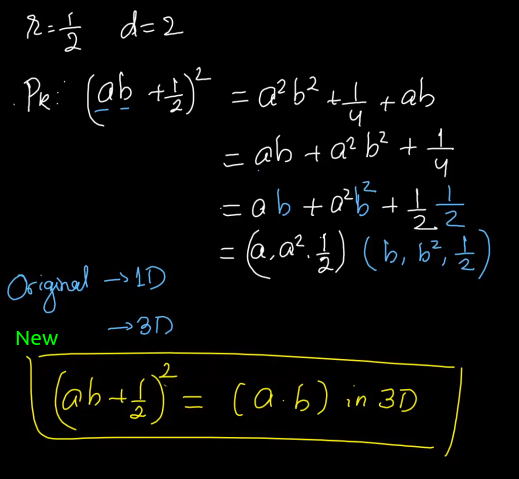 r = 1/2 d = 2
Pk: (ab + 1/2)² = a²b² + 1/4 + ab
= ab + a²b² + 1/4
= ab + a²b² + 1/2 1/2
= (a, a², 1/2) (b, b², 1/2)
Original → 1D
New → 3D
(ab + 1/2)² = (a · b) in 3D